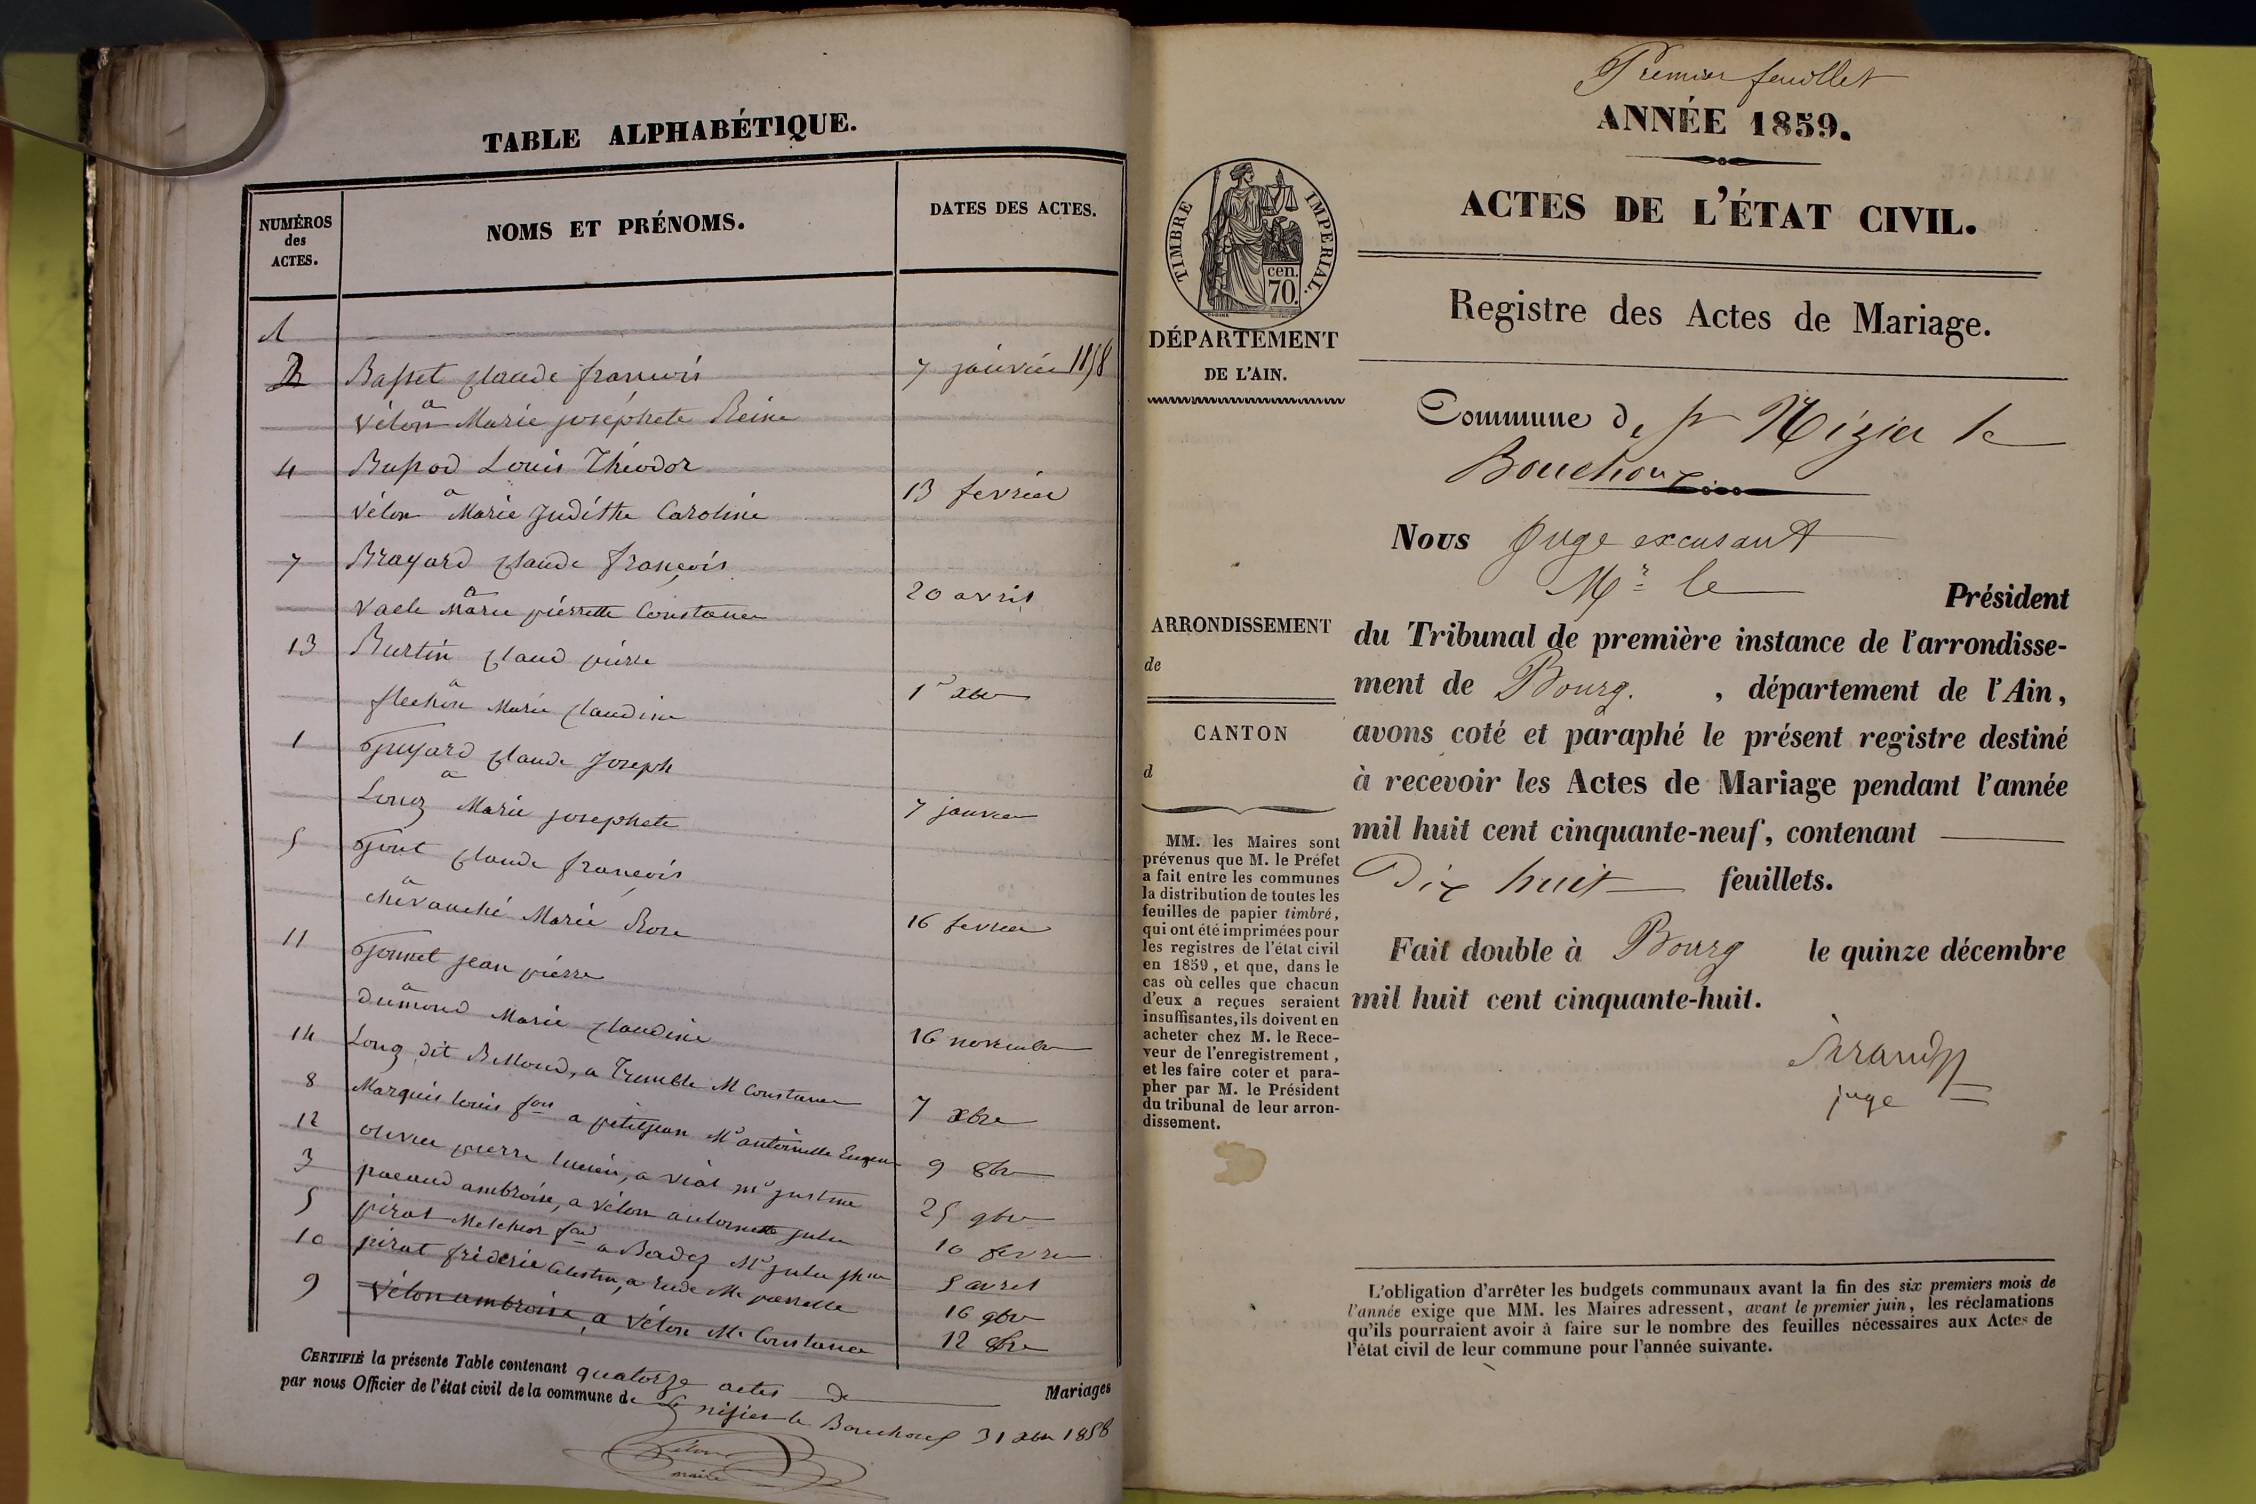 TABLE ALPHABÉTIQUE.
NUMÉROS
des
ACTES.
NOMS ET PRÉNOMS.
DATES DES ACTES.
1
2 Basset Claude françois 7 janvier 1858
à
Vélon Marie josephete Reine
4 Bussod Louis Théodor
à
13 fevrier
Vélon Marie Judithe Caroline
7 Brayard Claude françois
à
20 avril
Marie pierrette Constance
13 Burtin Claud pierre
à
1r xbre
flechon Marie Claudine
1 Guyard Claude Joseph
à
Long Marie josephete 7 janvier
5 Gout Claude françois
à
chevauché Marie Rose 16 fevrier
11 Gonnet jean pierre
à
dumond Marie Claudine 16 novembre
14 Long dit Belloud, a Tremble M Constance 7 xbre
8 Marquis louis fois a petitjean Me antoinette Eugenie 9 8bre
12 olivier pierre lucien, a Viat me justine 25 9bre
3 pacaud ambroise, a Vélon antoinette julie 10 fevrier
5 pirat Melchior fois a Me julie 5 avril
10 pirat fréderic Celestin, a Me 16 9bre
9 Vélon ambroise, a Vélon Me Constance 12 8bre
CERTIFIÉ la présente Table contenant quatorze actes de Mariages
par nous Officier de l'état civil de la commune de St nisier le Bouchoux 31 xbre 1858
Vélon
maire
Premier feuillet
ANNÉE 1859.
TIMBRE IMPERIAL.
cen.
70.
ACTES DE L'ÉTAT CIVIL.
Registre des Actes de Mariage.
DÉPARTEMENT
DE L'AIN.
Commune de St Nizier le
Bouchoux
Nous Juge excusant
Mr. le Président
ARRONDISSEMENT
de
du Tribunal de première instance de l'arrondisse-
ment de Bourg. , département de l'Ain,
CANTON
d
avons coté et paraphé le présent registre destiné
à recevoir les Actes de Mariage pendant l'année
mil huit cent cinquante-neuf, contenant
Dix huit feuillets.
Fait double à Bourg le quinze décembre
mil huit cent cinquante-huit.
juge
MM. les Maires sont
prévenus que M. le Préfet
a fait entre les communes
la distribution de toutes les
feuilles de papier timbré,
qui ont été imprimées pour
les registres de l'état civil
en 1859, et que, dans le
cas où celles que chacun
d'eux a reçues seraient
insuffisantes, ils doivent en
acheter chez M. le Rece-
veur de l'enregistrement,
et les faire coter et para-
pher par M. le Président
du tribunal de leur arron-
dissement.
L'obligation d'arrêter les budgets communaux avant la fin des six premiers mois de
l'année exige que MM. les Maires adressent, avant le premier juin, les réclamations
qu'ils pourraient avoir à faire sur le nombre des feuilles nécessaires aux Actes de
l'état civil de leur commune pour l'année suivante.